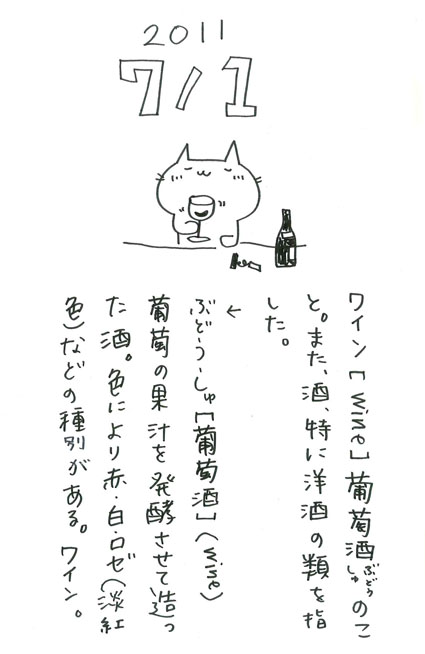 2011
7/1
ワイン[wine]葡萄酒ぶどうしゅのこ
と。また、酒、特に洋酒の類を指
した。
←
ぶど・う‐しゅ[葡萄酒](wine)
葡萄の果汁を発酵させて造っ
た酒。色により赤・白・ロゼ(淡紅
色)などの種別がある。ワイン。